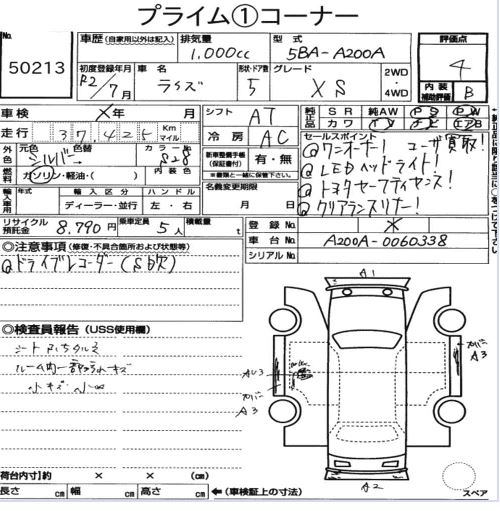 プライム①コーナー
No.
50213
車歴 (自家用以外は記入)
排気量
1,000cc
型式
5BA-A200A
評価点
4
初度登録年月
R2/7月
車名
ライズ
形状・ドア数
5
グレード
XS
2WD
4WD
内装
補助評価
B
車検
年 月
シフト
AT
純正品
SR 純AW PS PW
カワ TV ナビ エアB
走行
37,425
Km
マイル
冷房
AC
セールスポイント
@ワンオーナー! ユーザ買取!
@LEDヘッドライト!
@トヨタセーフティセンス!
@クリアランスソナー!
外色
元色
シルバー
色替
カラーNo.
S28
燃料
ガソリン・軽油・( )
内装色
新車整備手帳
(保証書付)
有・無
※書類と一緒に保管して下さい。
輸入車用
年式
輸入区分
ディーラー・並行
ハンドル
左・右
名義変更期限
月 日
リサイクル
預託金
8,790円
乗車定員
5人
積載量
t
登録No.
車台No.
A200A-0060338
シリアルNo.
◎注意事項 (修復・不具合箇所および状態等)
@ドライブレコーダー(SD欠)
◎検査員報告 (USS使用欄)
小キズ 小凹
A1
AU3
A3
A3
A2
スペア
荷台内寸)約 × × (cm)
長さ cm 幅 cm 高さ cm ←(車検証上の寸法)